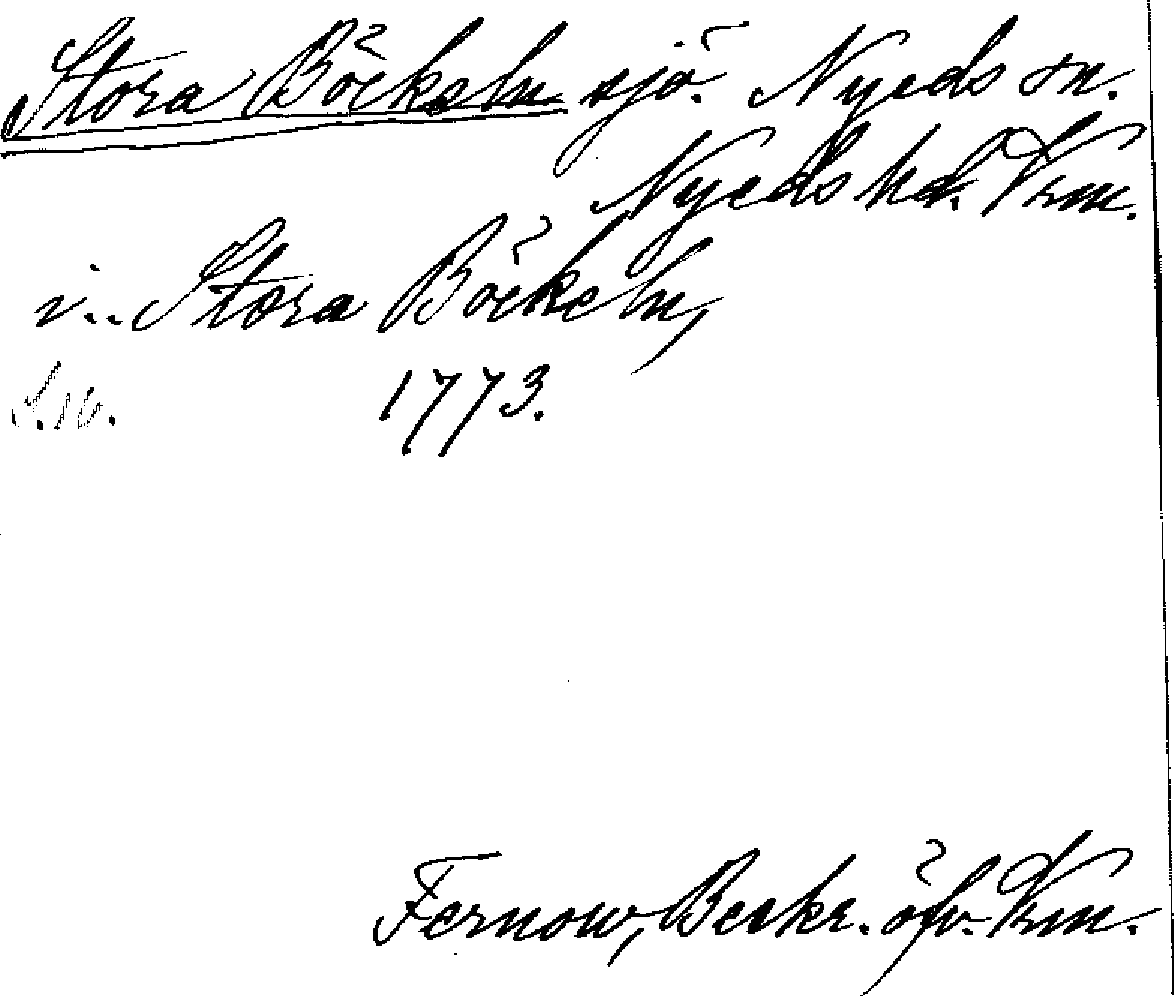 Stora Böckeln sjö. Nyeds sn.
Nyeds hd. Vrm.
i.. Stora Böckeln,
S. 16. 1773.
Fernow, Beskr. öfv. Vrm.